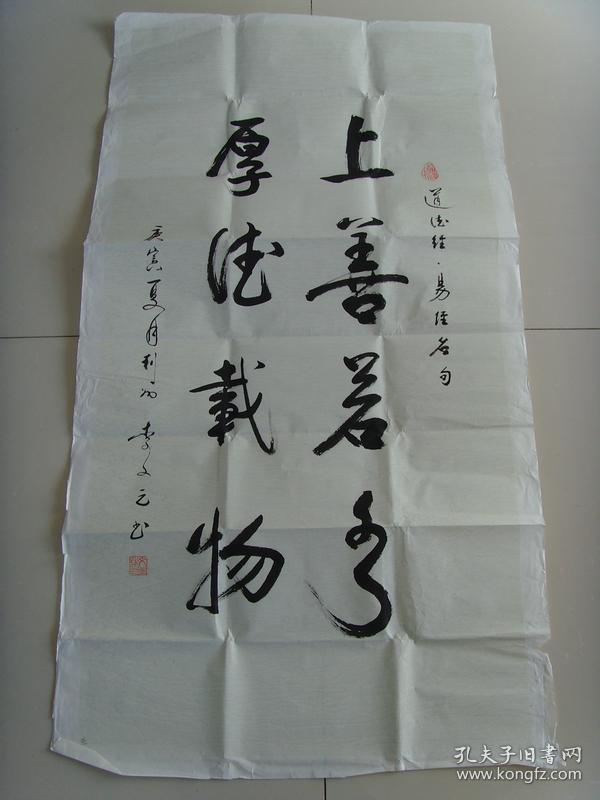 道德经·易经名句
上善若水
厚德载物
庚寅夏月利为 李文元书
孔夫子旧書网
www.kongfz.com